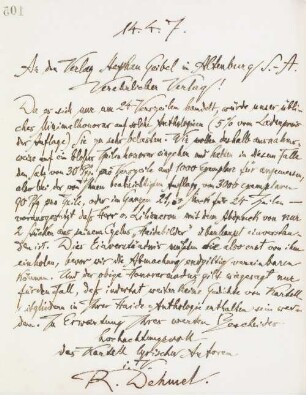 105
14. 4. 7.
An den Verlag Stephan Geibel in Altenburg S.-A.
Verehrlicher Verlag!
Da es sich nur um 24 Verszeilen handelt, würde unser übli-
ches Minimalhonorar auf solche Anthologieen (5% vom Ladenpreis
der Auflage) Sie zu sehr belasten. Wir wollen deshalb ausnahms-
weise auf ein bloßes Zeilenhonorar eingehen und halten in diesem Falle
den Satz von 30 Pf. pro Verszeile auf 1000 Exemplare für angemessen,
also bei der von Ihnen beabsichtigten Auflage von 3000 Exemplaren
90 Pf. pro Zeile, oder im Ganzen 21,60 Mark für 24 Zeilen –
vorausgesetzt daß Herr v. Liliencron mit dem Abdruck von nur
2 Stücken aus seinem Cyclus „Haidebilder“ überhaupt einverstan-
den ist. Dies Einverständnis müßten Sie also erst von ihm
einholen, bevor wir die Abmachung endgültig vereinbaren
können. Auch der obige Honorarmodus gilt einzig und nur
für den Fall, daß indertat weiter keine Gedichte von Kartell-
mitgliedern in Ihrer Haide-Anthologie enthalten sein wer-
den. In Erwartung Ihres werten Bescheides
hochachtungsvoll
das Kartell lyrischer Autoren
i. V.
R. Dehmel.